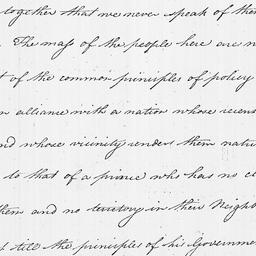 together that we never speak of them
. The mass of the people here are n
t of the common principles of policy
n alliance with a nation whose recen
nd whose vicinity renders them natu
to that of a prince who has no cl
them and no territory in their Neighb
t till the principles of his Governme